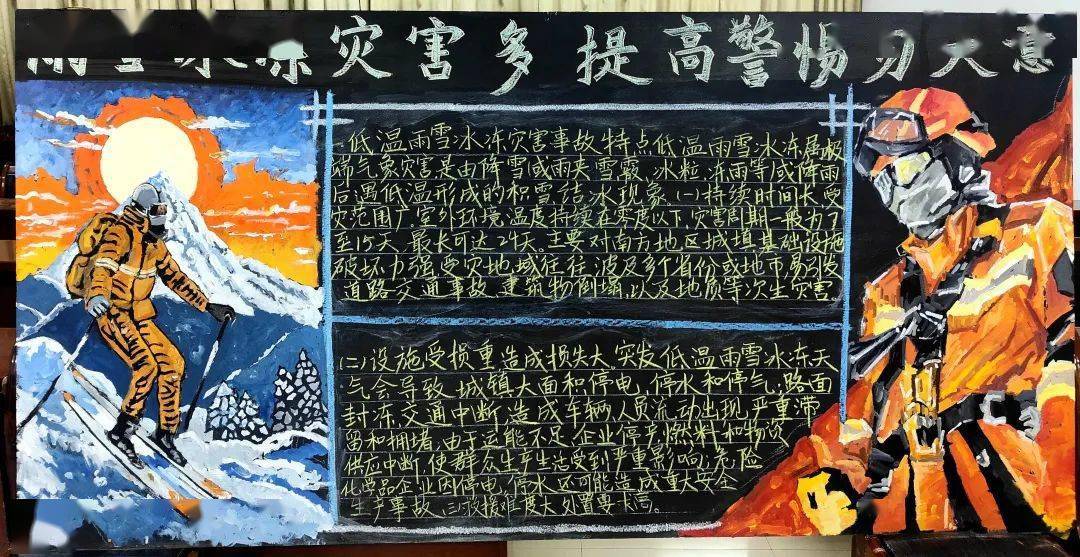 雨雪冰冻灾害多 提高警惕勿大意
一、低温雨雪冰冻灾害事故特点低温雨雪冰冻属极
端气象灾害是由降雪或雨夹雪霰、冰粒、冻雨等或降雨
后遇低温形成的积雪结冰现象(一)持续时间长受
灾范围广。室外环境温度持续在零度以下,灾害周期一般为7
至15天、最长可达24天。主要对南方地区城镇基础设施
破坏力强受灾地域往往波及多个省份或地市,易引发
道路交通事故、建筑物倒塌、以及地质等次生灾害
(二)设施受损重造成损失大。突发低温雨雪冰冻天
气会导致城镇大面积停电、停水和停气;路面
封冻、交通中断造成车辆、人员流动出现严重滞
留和拥堵,由于运能不足、企业停产,燃料和物资
供应中断,使群众生产生活受到严重影响;危险
化学品企业因停电、停水还可能造成重大安全
生产事故。(三)救援难度大处置要求高。